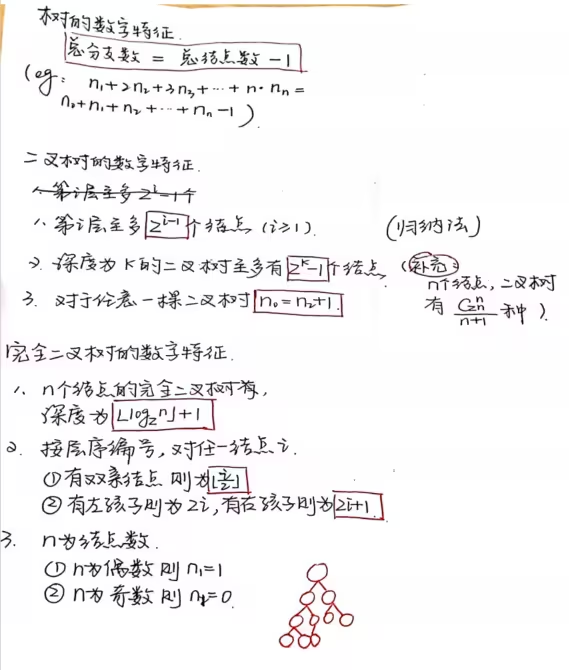 树的数字特征.
总分支数 = 总结点数 - 1
(eg: n₁+2n₂+3n₃+···+n·nₙ=
n₀+n₁+n₂+···+nₙ-1)
二叉树的数字特征.
1. 第i层至多2ⁱ-1个
1. 第i层至多2ⁱ⁻¹个结点 (i≥1). (归纳法)
2. 深度为K的二叉树至多有2ᴷ-1个结点. (补充:
n个结点, 二叉树
有 C₂ₙⁿ/n+1 种).
3. 对于任意一棵二叉树 n₀=n₂+1.
完全二叉树的数字特征.
1. n个结点的完全二叉树,
深度为⌊log₂n⌋+1
2. 按层序编号, 对任一结点i.
① 有双亲结点 则为⌊i/2⌋
② 有左孩子则为2i, 有右孩子则为2i+1.
3. n为结点数.
① n为偶数则n₁=1
② n为奇数则n₁=0.